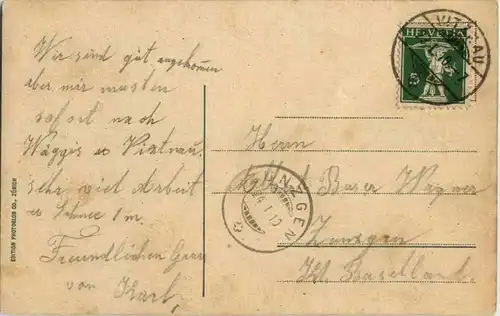 Wir sind gut angekommen
aber mir mussten
sofort nach
Wäggis u Vitznau.
sehr viel Arbeit
u Schnee 1 m.
Freundlichen Gruss
von Karl,
EDITION PHOTOGLOB CO., ZÜRICH
HELVETIA
5
VITZNAU
Herrn
Baser Wagner
ZUNZGEN
Zunzgen
Kt. Baselland.